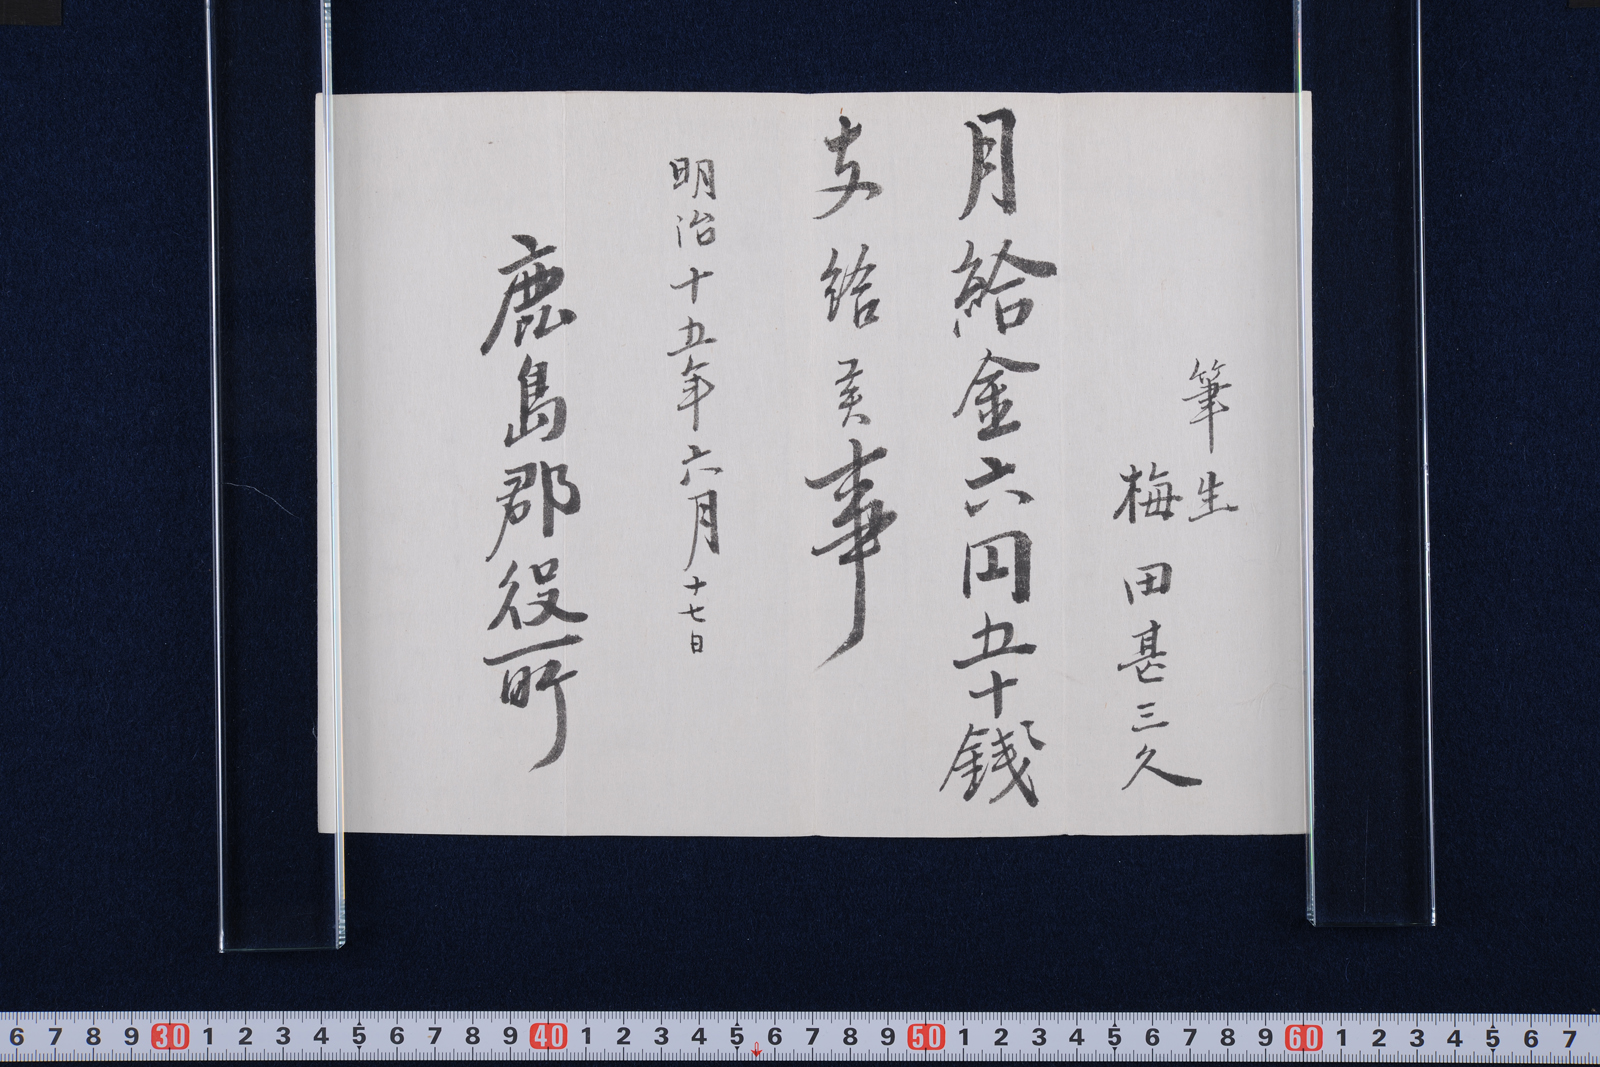 筆生
梅田甚三久
月給金六円五十銭
支給候事
明治十五年六月十七日
鹿島郡役所
6 7 8 9 30 1 2 3 4 5 6 7 8 9 40 1 2 3 4 5 6 7 8 9 50 1 2 3 4 5 6 7 8 9 60 1 2 3 4 5 6 7